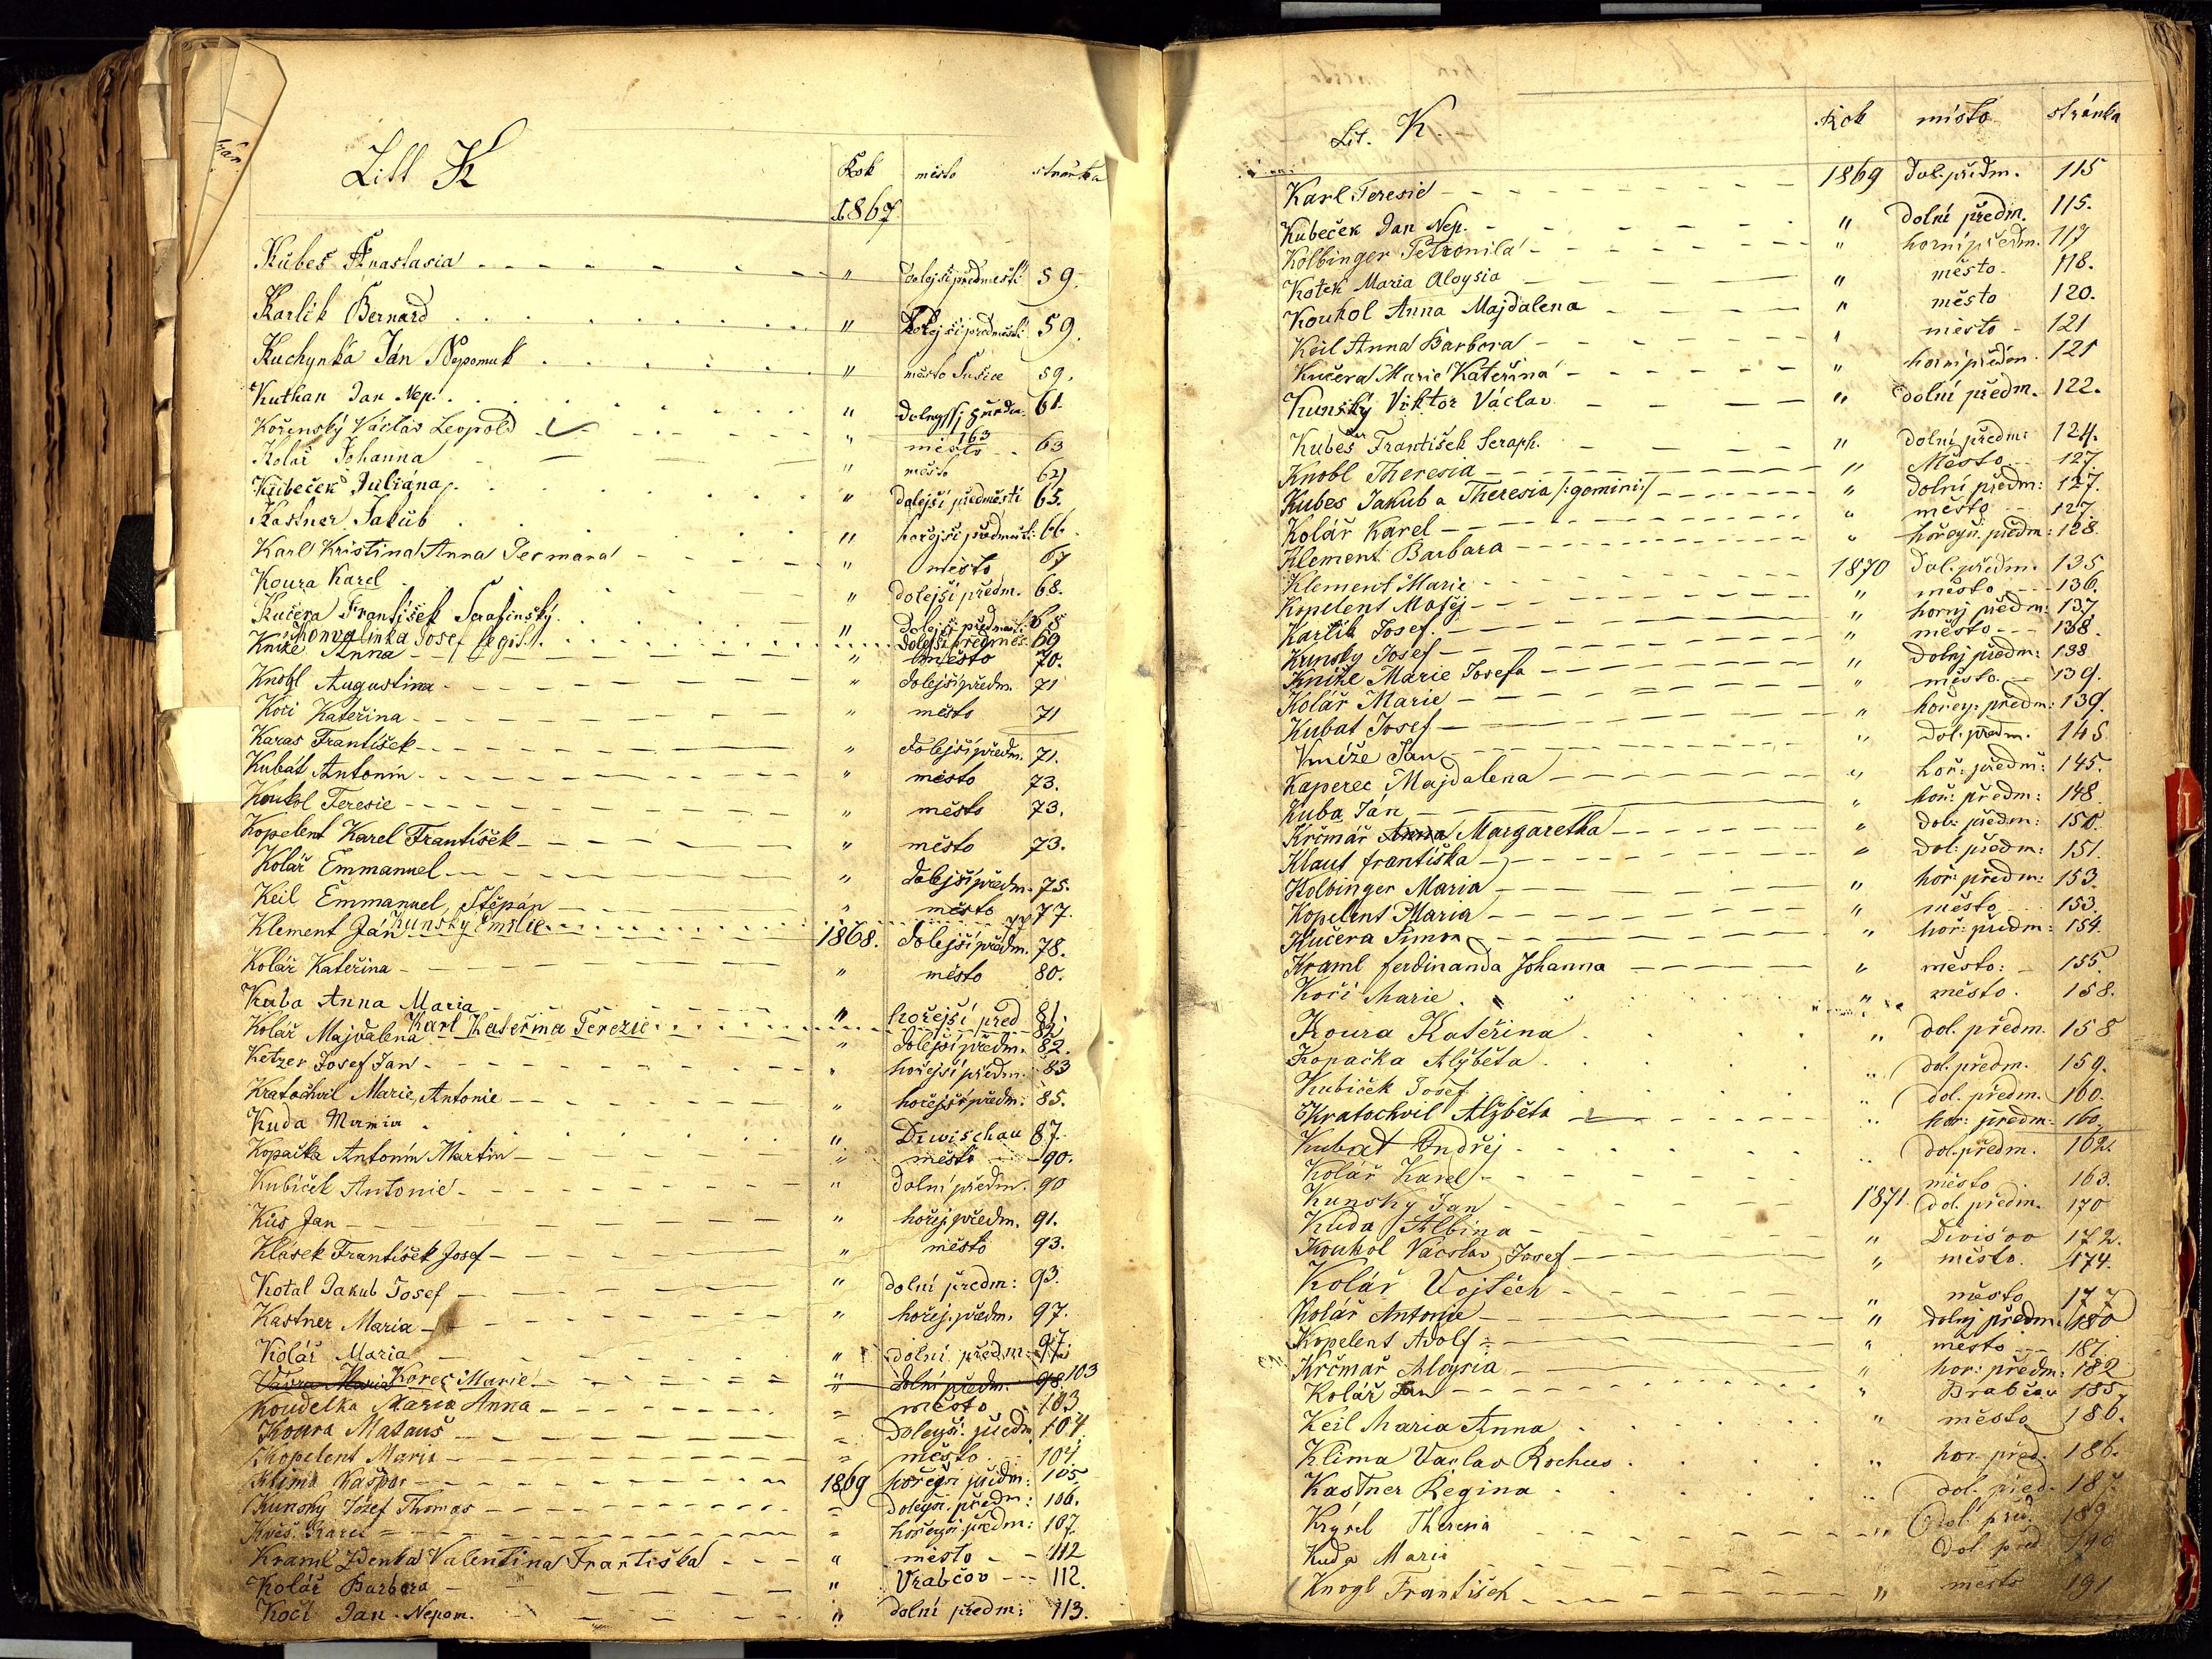 Litt K
Rok město stránka
1867
Kubeš Anastasia " dolejší předměstí 59.
Karlík Bernard " Dolejší předměstí 59.
Kuchynka Ján Nepomuk " město Sušice 59.
Kuthan Jan Nep. " 61.
Kořenský Václav Leopold " město 163 63
Kolář Johanna " město 62
Kubeček Juliána " dolejší předměstí 65.
Kastner Jakub " hořejší předměstí: 66.
Karl Kristina Anna Germana " město 67
Koura Karel " dolejší předm. 68.
Kučera František Serafinský " dolejší předměst: 68
Konvalinka Josef legit. dolejší předměs. 69
Kníže Anna " město 70.
Knogl Augustina " dolejší předm. 71
Kočí Kateřina " město 71
Karas František " dolejší předm. 71.
Kubát Antonín " město 73.
Koukol Teresie " město 73.
Kopelent Karel František " město 73.
Kolář Emmanuel " dolejší předm. 75.
Keil Emmanuel, Štěpán " město 77.
Kunský Emilie 77
Klement Ján 1868. dolejší předm. 78.
Kolář Kateřina " město 80.
Kuba Anna Maria " hořejší před 81.
Karl Kateřina Terezie 82
Kolář Majdalena " dolejší předm. 82.
Ketzer Josef Jan " hořejší předm. 83
Kratochvil Marie, Antonie " hořejší předm: 85.
Kuda Maria " Diwischau 87.
Kopačka Antonín Martin " město 90.
Kubíček Antonie " dolní předm. 90
Kůs Jan " hořej. předm. 91.
Klásek František Josef " město 93.
Kotal Jakub Josef " dolní předm: 93.
Kastner Maria " hořej. předm. 97.
Kolář Maria " dolní předm: 97.
Vávra Maria Korec Marie " dolní předm. 98. 103
Koudelka Maria Anna " město 103
Koura Matouš " Dolejší. předm. 104.
Kopelent Maria " město 104.
Klima Kašpar 1869 hořejší předm: 105.
Kunský Jozef Thomas " dolejší. předm: 106.
Karel " hořejší. předm: 107.
Kraml Zdenka Valentina Františka " město 112
Kolář Barbora " Vrabčov 112.
Kočí Jan Nepom. " dolní předm: 113.
Lit. K.
Rok místo stránka
Karl Teresie 1869 Dol. předm. 115
Kubeček Jan Nep. " dolní předm. 115.
Kolbinger Petronila " horní předm. 117
Kotek Maria Aloysia " město 118.
Koukol Anna Majdalena " město 120.
Keil Anna Barbora " město 121
Kučera Marie Kateřina " horní předm. 121
Kunský Viktor Václav " dolní předm. 122.
Kubeš František Seraph. " dolní předm: 124.
Knobl Theresia " Město 127.
Kubes Jakub a Theresia /:gemini:/ " dolní předm: 127.
Kolář Karel " město 127.
Klement Barbara " hořejší. předm: 128.
Klement Marie 1870 Dol. předm. 135
Kopelent Matěj " město 136.
Karlík Josef " hornj předm: 137
Kunsky Josef " město 138.
Kníže Marie Josefa " Dolnj předm: 138
Kolář Marie " město. 139.
Kubat Josef " hořej: předm: 139.
Kníže Jan " Dol. předm. 145
Kaperec Majdalena " hoř: předm: 145.
Kuba Ján " hoř: předm: 148.
Krčmář Anna Margaretha " dol: předm: 150.
Klaut františka " Dol: předm: 151.
Kolbinger Maria " hoř: předm: 153.
Kopelent Maria " město 153.
Kučera Šimon " hoř: předm: 154.
Kraml ferdinanda Johanna " město: 155.
Kočí Marie " město. 158.
Koura Kateřina " dol. předm. 158
Kopačka Alžběta " dol. předm. 159.
Kubíček Josef " dol. předm. 160.
Kratochvil Alžběta " hoř: předm: 160.
Kubat Ondřej " dol. předm. 162.
Kolář Karel město 163.
Kunský Jan 1871. dol. předm. 170
Kuda Albína " Divišov 172.
Koukol Václav Josef " město. 174.
Kolář Vojtěch " město 177
Kolář Antonie " dolnj předm. 180
Kopelent Adolf " město 181
Krčmář Aloysia " hor: předm: 182
Kolář Jan " Vrabčov 185.
Keil Maria Anna " město 186.
Klima Vaclav Rochus " hor. před. 186.
Kastner Regina " dol. před. 187.
Krysel Theresia " Dol. před. 189
Kuda Marie dol. před 190
Knogl František " město 191